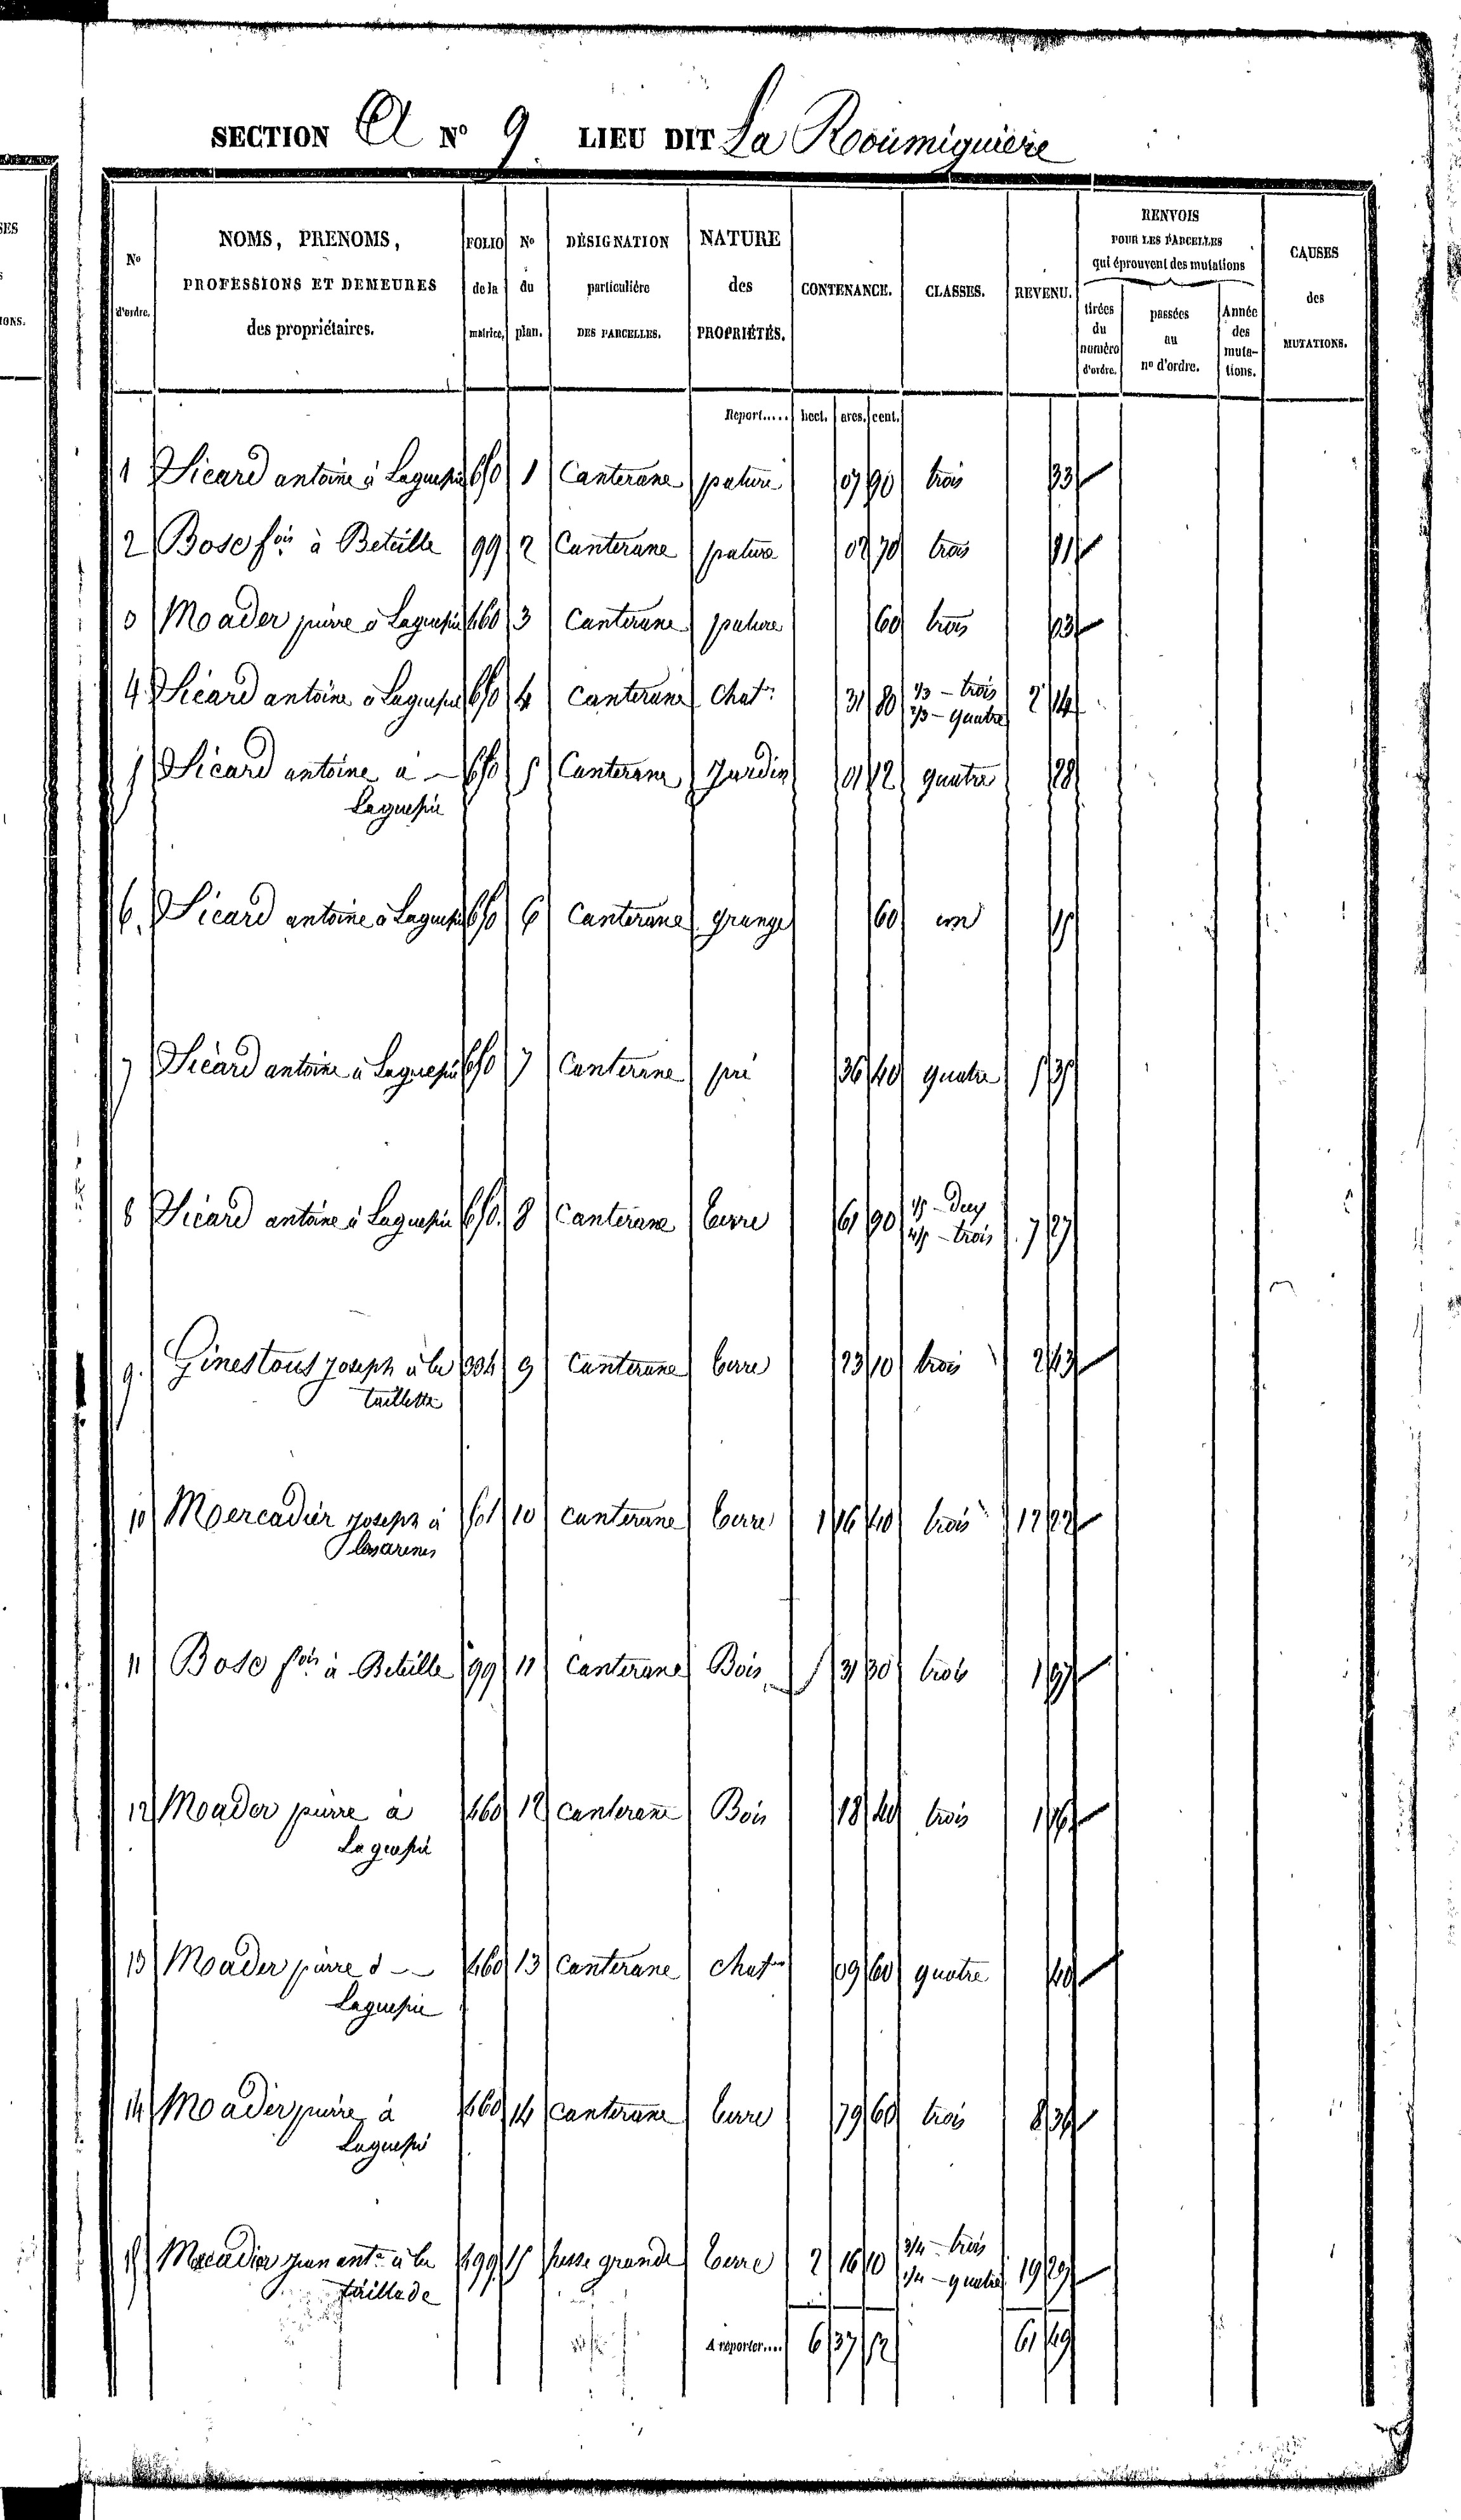 SECTION A N° 9 LIEU DIT La Rooumiguiere
N° d'ordre.
NOMS, PRENOMS, PROFESSIONS ET DEMEURES des propriétaires.
FOLIO de la matrice.
N° du plan.
DÉSIGNATION particulière DES PARCELLES.
NATURE des PROPRIÉTÉS.
CONTENANCE.
CLASSES.
REVENU.
RENVOIS POUR LES PARCELLES qui éprouvent des mutations
tirées du numéro d'ordre.
passées au n° d'ordre.
Année des mutations.
CAUSES des MUTATIONS.
Report..... hect. ares. cent.
1 Sicard antoine à Laguepie 650 1 Canterane pature 07 90 trois 33
2 Bosc fois à Beteille 99 2 Canterane pature 02 70 trois 11
3 Moader pierre à Laguepie 460 3 Canterane pature 60 trois 03
4 Sicard antoine à Laguepie 650 4 Canterane Chat. 31 80 1/3 – trois 2/3 – quatre 2 14
5 Sicard antoine à – 650 5 Canterane Jardin 01 12 quatre 28
Laguepie
6 Sicard antoine à Laguepie 650 6 Canterane grange 60 un 15
7 Sicard antoine à Laguepie 650 7 Canterane pré 36 40 quatre 5 35
8 Sicard antoine à Laguepie 650 8 Canterane terre 61 90 1/5 – Deux 4/5 – trois 7 27
9 Ginestous joseph à la 334 9 Canterane terre 23 10 trois 2 43
taillette
10 Mercadier joseph à 501 10 Canterane terre 1 16 40 trois 12 22
11 Bosc fois à Beteille 99 11 Canterane Bois 31 30 trois 1 97
12 Moader pierre à 460 12 Canterane Bois 18 40 trois 1 16
Laguepie
13 Moader pierre à – – 460 13 Canterane chat. 09 60 quatre 40
Laguepie
14 Moader pierre à 460 14 Canterane terre 79 60 trois 8 36
Laguepie
15 jean ant. à la 499 15 fusse grande terre 2 16 10 3/4 – trois 1/4 – quatre 19 29
taillade
A reporter.... 6 37 52 61 49